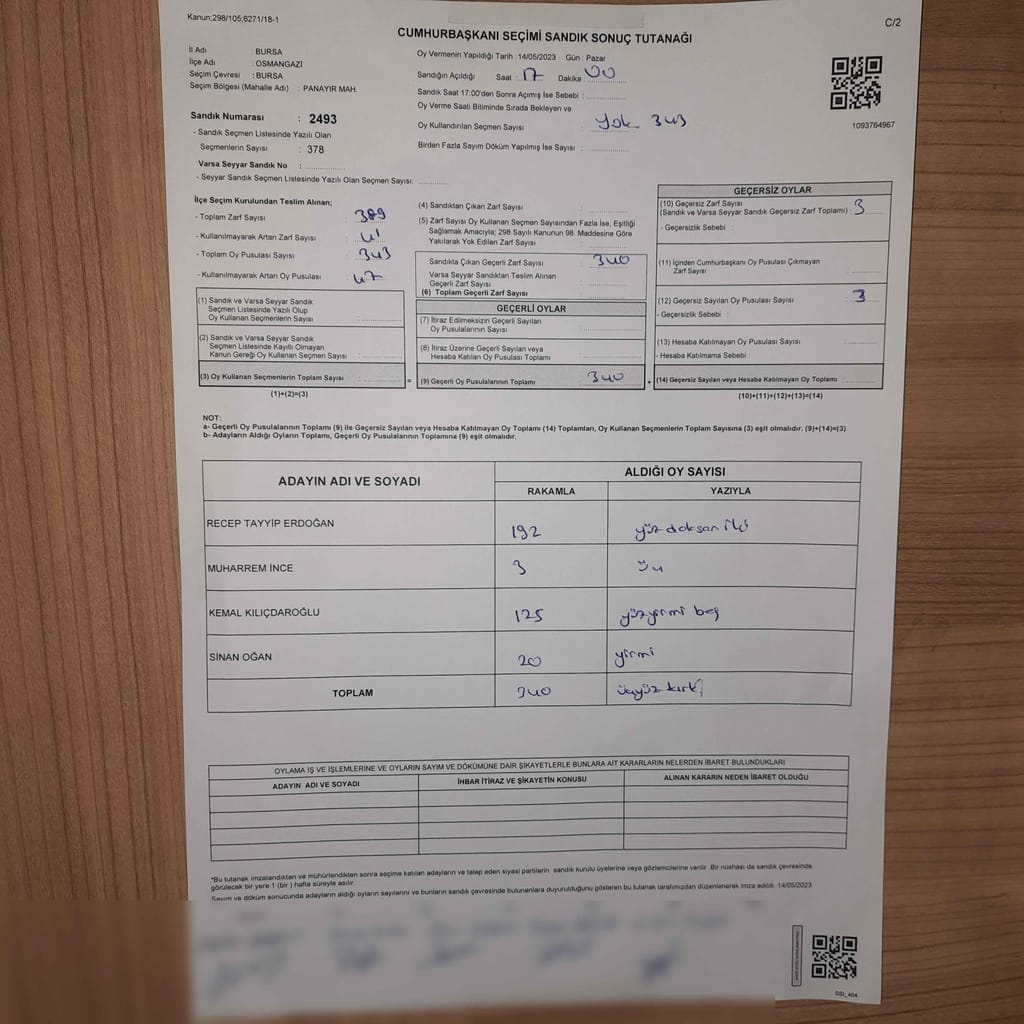 Kanun;298/105;6271/18-1
C/2
CUMHURBAŞKANI SEÇİMİ SANDIK SONUÇ TUTANAĞI
İl Adı : BURSA
İlçe Adı : OSMANGAZİ
Seçim Çevresi : BURSA
Seçim Bölgesi (Mahalle Adı) : PANAYIR MAH.
Oy Vermenin Yapıldığı Tarih : 14/05/2023 Gün : Pazar
Sandığın Açıldığı Saat : 17 Dakika : 00
Sandık Saat 17:00'den Sonra Açımış İse Sebebi :
Oy Verme Saati Bitiminde Sırada Bekleyen ve
Oy Kullandırılan Seçmen Sayısı : Yok 343
Birden Fazla Sayım Döküm Yapılmış İse Sayısı :
1093764967
Sandık Numarası : 2493
- Sandık Seçmen Listesinde Yazılı Olan
Seçmenlerin Sayısı : 378
Varsa Seyyar Sandık No :
- Seyyar Sandık Seçmen Listesinde Yazılı Olan Seçmen Sayısı:
İlçe Seçim Kurulundan Teslim Alınan;
- Toplam Zarf Sayısı : 389
- Kullanılmayarak Artan Zarf Sayısı : 41
- Toplam Oy Pusulası Sayısı : 343
- Kullanılmayarak Artan Oy Pusulası : 47
(1) Sandık ve Varsa Seyyar Sandık
Seçmen Listesinde Yazılı Olup
Oy Kullanan Seçmenlerin Sayısı :
(2) Sandık ve Varsa Seyyar Sandık
Seçmen Listesinde Kayıtlı Olmayan
Kanun Gereği Oy Kullanan Seçmen Sayısı :
(3) Oy Kullanan Seçmenlerin Toplam Sayısı :
(1)+(2)=(3)
(4) Sandıktan Çıkan Zarf Sayısı :
(5) Zarf Sayısı Oy Kullanan Seçmen Sayısından Fazla İse, Eşitliği
Sağlamak Amacıyla; 298 Sayılı Kanunun 98. Maddesine Göre
Yakılarak Yok Edilen Zarf Sayısı :
Sandıkta Çıkan Geçerli Zarf Sayısı : 340
Varsa Seyyar Sandıktan Teslim Alınan
Geçerli Zarf Sayısı :
(6) Toplam Geçerli Zarf Sayısı :
GEÇERLİ OYLAR
(7) İtiraz Edilmeksizin Geçerli Sayılan
Oy Pusulalarının Sayısı :
(8) İtiraz Üzerine Geçerli Sayılan veya
Hesaba Katılan Oy Pusulası Toplamı :
= (9) Geçerli Oy Pusulalarının Toplamı : 340 +
GEÇERSİZ OYLAR
(10) Geçersiz Zarf Sayısı
(Sandık ve Varsa Seyyar Sandık Geçersiz Zarf Toplamı) : 3
- Geçersizlik Sebebi :
(11) İçinden Cumhurbaşkanı Oy Pusulası Çıkmayan
Zarf Sayısı :
(12) Geçersiz Sayılan Oy Pusulası Sayısı : 3
- Geçersizlik Sebebi :
(13) Hesaba Katılmayan Oy Pusulası Sayısı :
- Hesaba Katılmama Sebebi :
(14) Geçersiz Sayılan veya Hesaba Katılmayan Oy Toplamı :
(10)+(11)+(12)+(13)=(14)
NOT:
a- Geçerli Oy Pusulalarının Toplamı (9) ile Geçersiz Sayılan veya Hesaba Katılmayan Oy Toplamı (14) Toplamları, Oy Kullanan Seçmenlerin Toplam Sayısına (3) eşit olmalıdır. (9)+(14)=(3)
b- Adayların Aldığı Oyların Toplamı, Geçerli Oy Pusulalarının Toplamına (9) eşit olmalıdır.
ADAYIN ADI VE SOYADI
ALDIĞI OY SAYISI
RAKAMLA YAZIYLA
RECEP TAYYİP ERDOĞAN 192 yüz doksan iki
MUHARREM İNCE 3 Üç
KEMAL KILIÇDAROĞLU 125 yüzyirmi beş
SİNAN OĞAN 20 yirmi
TOPLAM 340 üçyüz kırk
OYLAMA İŞ VE İŞLEMLERİNE VE OYLARIN SAYIM VE DÖKÜMÜNE DAİR ŞİKAYETLERLE BUNLARA AİT KARARLARIN NELERDEN İBARET BULUNDUKLARI
ADAYIN ADI VE SOYADI İHBAR İTİRAZ VE ŞİKAYETİN KONUSU ALINAN KARARIN NEDEN İBARET OLDUĞU
*Bu tutanak imzalandıktan ve mühürlendikten sonra seçime katılan adayların ve talep eden siyasi partilerin sandık kurulu üyelerine veya gözlemcilerine verilir. Bir nüshası da sandık çevresinde
görülecek bir yere 1 (bir) hafta süreyle asılır.
Sayım ve döküm sonucunda adayların aldığı oyların sayılarını ve bunların sandık çevresinde bulunanlara duyurulduğunu gösteren bu tutanak tarafımızdan düzenlenerek imza edildi. 14/05/2023
SSI_404